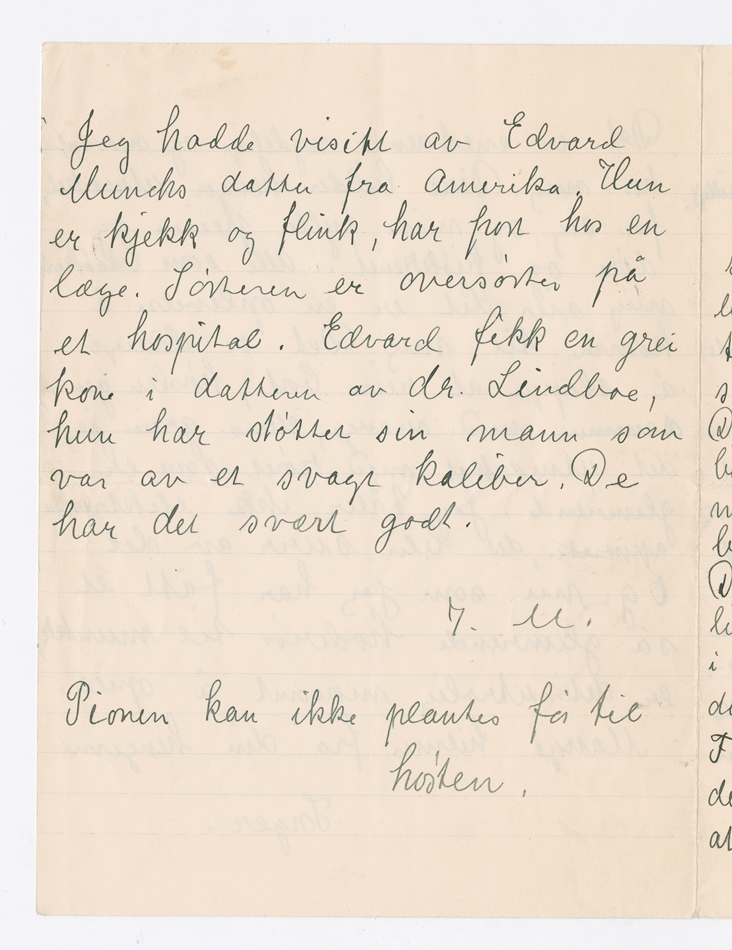 Jeg hadde visitt av Edvard
Munchs datter fra Amerika. Hun
er kjekk og flink, har post hos en
læge. Søsteren er oversøster på
et hospital. Edvard fikk en grei
kone i datteren av dr. Lindboe,
hun har støttet sin mann som
var av et svagt kaliber. De
har det svært godt.
I. M.
Pionen kan ikke plantes før til
høsten.